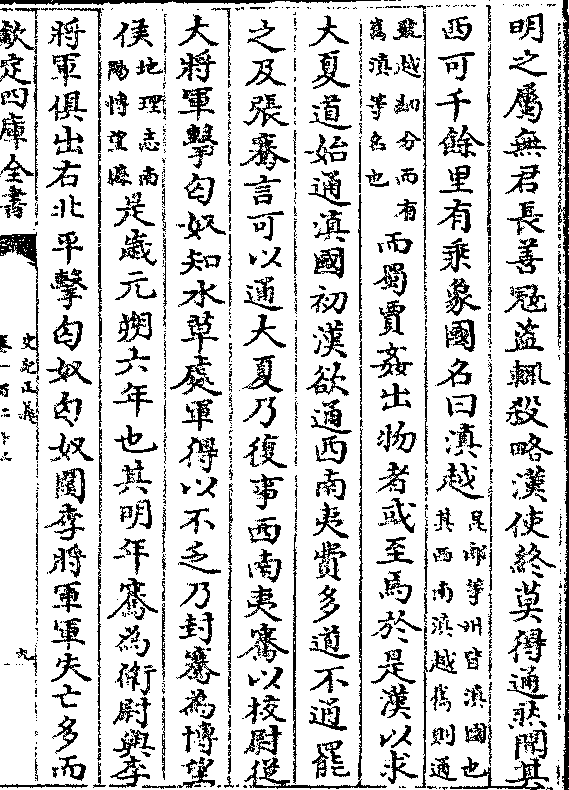 明之屬無君長善冦盜輙殺略漢使終莫得通然聞其
西可千餘里有乘象國名曰滇越昆郎等州皆滇國也其西南滇越雟則通
號越細分而有雟滇等名也而蜀賈姦出物者或至焉於是漢以求
大夏道始通滇國初漢欲通西南夷費多道不通罷
之及張騫言可以通大夏乃復事西南夷騫以校尉從
大將軍擊匈奴知水草處軍得以不乏乃封騫為博望
侯地理志南陽博望縣是歲元朔六年也其明年騫為衛尉與李
將軍俱出右北平擊匈奴匈奴圍李將軍軍失亡多而
欽定四庫全書
史記正義
卷一百二十三
九